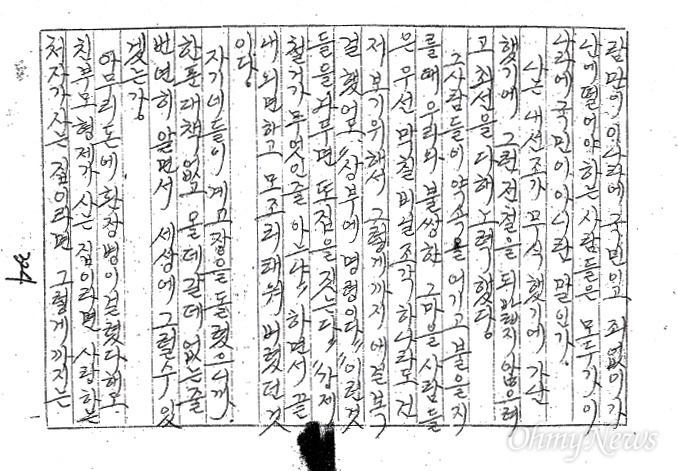 람만이 이나라에 국민이고 죄없이 가
난에 떨어야하는 사람들은 모두가 이
나라에 국민이 아니란 말인가.
나는 내선조가 무식했기에 가난
했기에 그런전철을 되밟지 않으려
고 최선을 다해 노력했당.
그사람들이 약속을 어기고 불을지
를때 우리의 불쌍한 그마을 사람들
은 우선 막칠 비닐조각 하나라도 건
저 보기위해서 그렇게까지 애걸복
걸했었고 "상부에 명령이다" 이런것
들을 놔두면 또집을 짓는다" "강제
철거가 무엇인줄 아느냐" 하면서 끝
내 외면하고 모조리 태워 버렸던것
이당.
자기네들이 계고장을 돌렸으니까.
한푼대책 없고 올데갈데 없는줄
번연히 알면서 세상에 그럴수있
겠는강
아무리 돈에 환장병이 걸렸다해도
친부모형제가 사는 집이라면 사랑하는
처자가 사는 집이라면 그렇게까지는
OhmyNews